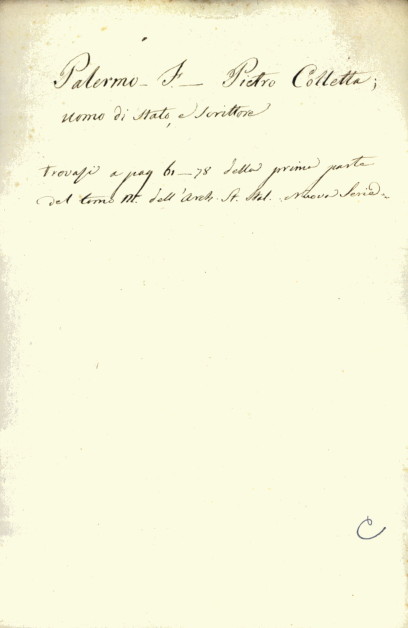 Palermo - F. - Pietro Colletta;
uomo di stato, e scrittore
trovasi a pag 61-78 della prima parte
del tomo III. dell'Arch. St. Ital. Nuova Serie.
C